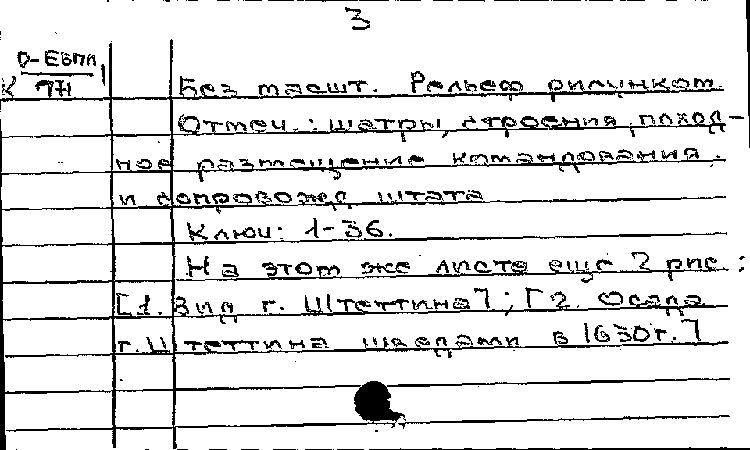 3
О-Евпл
К 971
Без масшт. Рельеф рисунком
Отмеч.: шатры, строения, поход-
ное размещение командования
и сопровожд штата
Ключ: 1-36.
На этом же листе еще 2 рис.:
[1. Вид г. Штеттина]; [2. Осада
г. Штеттина шведами в 1630г.]